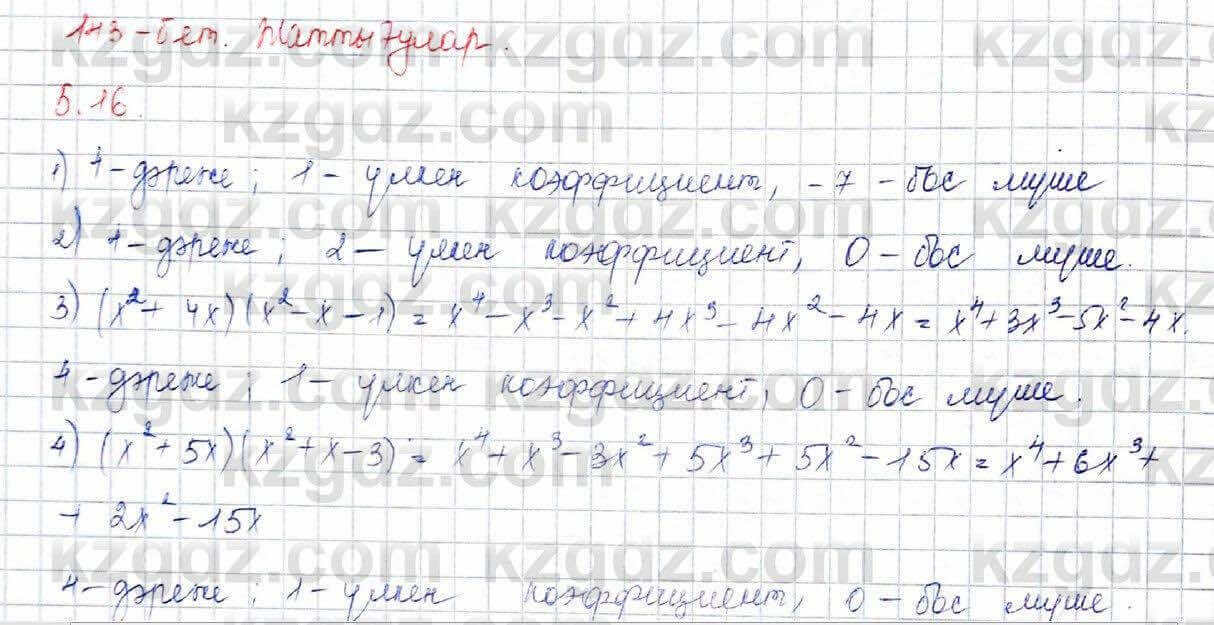 143-бет. Жаттығулар.
5.16.
1) 4-дәреже; 1 - үлкен коэффициент, -7 - бос мүше
2) 4-дәреже; 2 - үлкен коэффициент, 0 - бос мүше.
3) (x²+ 4x)(x²-x-1) = x⁴-x³-x²+4x³-4x²-4x = x⁴+3x³-5x²-4x.
4-дәреже; 1 - үлкен коэффициент, 0 - бос мүше.
4) (x²+5x)(x²+x-3) = x⁴+x³-3x²+5x³+5x²-15x = x⁴+6x³+
+ 2x²-15x
4-дәреже; 1 - үлкен коэффициент, 0 - бос мүше.
kzgdz.com